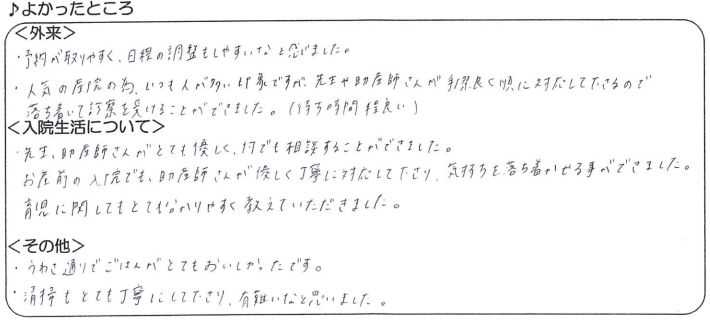 ♪よかったところ
＜外来＞
・予約が取りやすく、日程の調整もしやすいなと感じました。
・人気の産院の為、いつも人が多い印象ですが、先生や助産師さんが手際良く順に対応して下さるので
落ち着いて診察を受けることができました。(待ち時間程良い)
＜入院生活について＞
・先生、助産師さんがとても優しく、何でも相談することができました。
お産前の入院でも、助産師さんが優しく丁寧に対応して下さり、気持ちを落ち着かせる事ができました。
育児に関してもとても分かりやすく教えていただきました。
＜その他＞
・うわさ通りでごはんがとてもおいしかったです。
・清掃もとても丁寧にして下さり、有難いなと思いました。